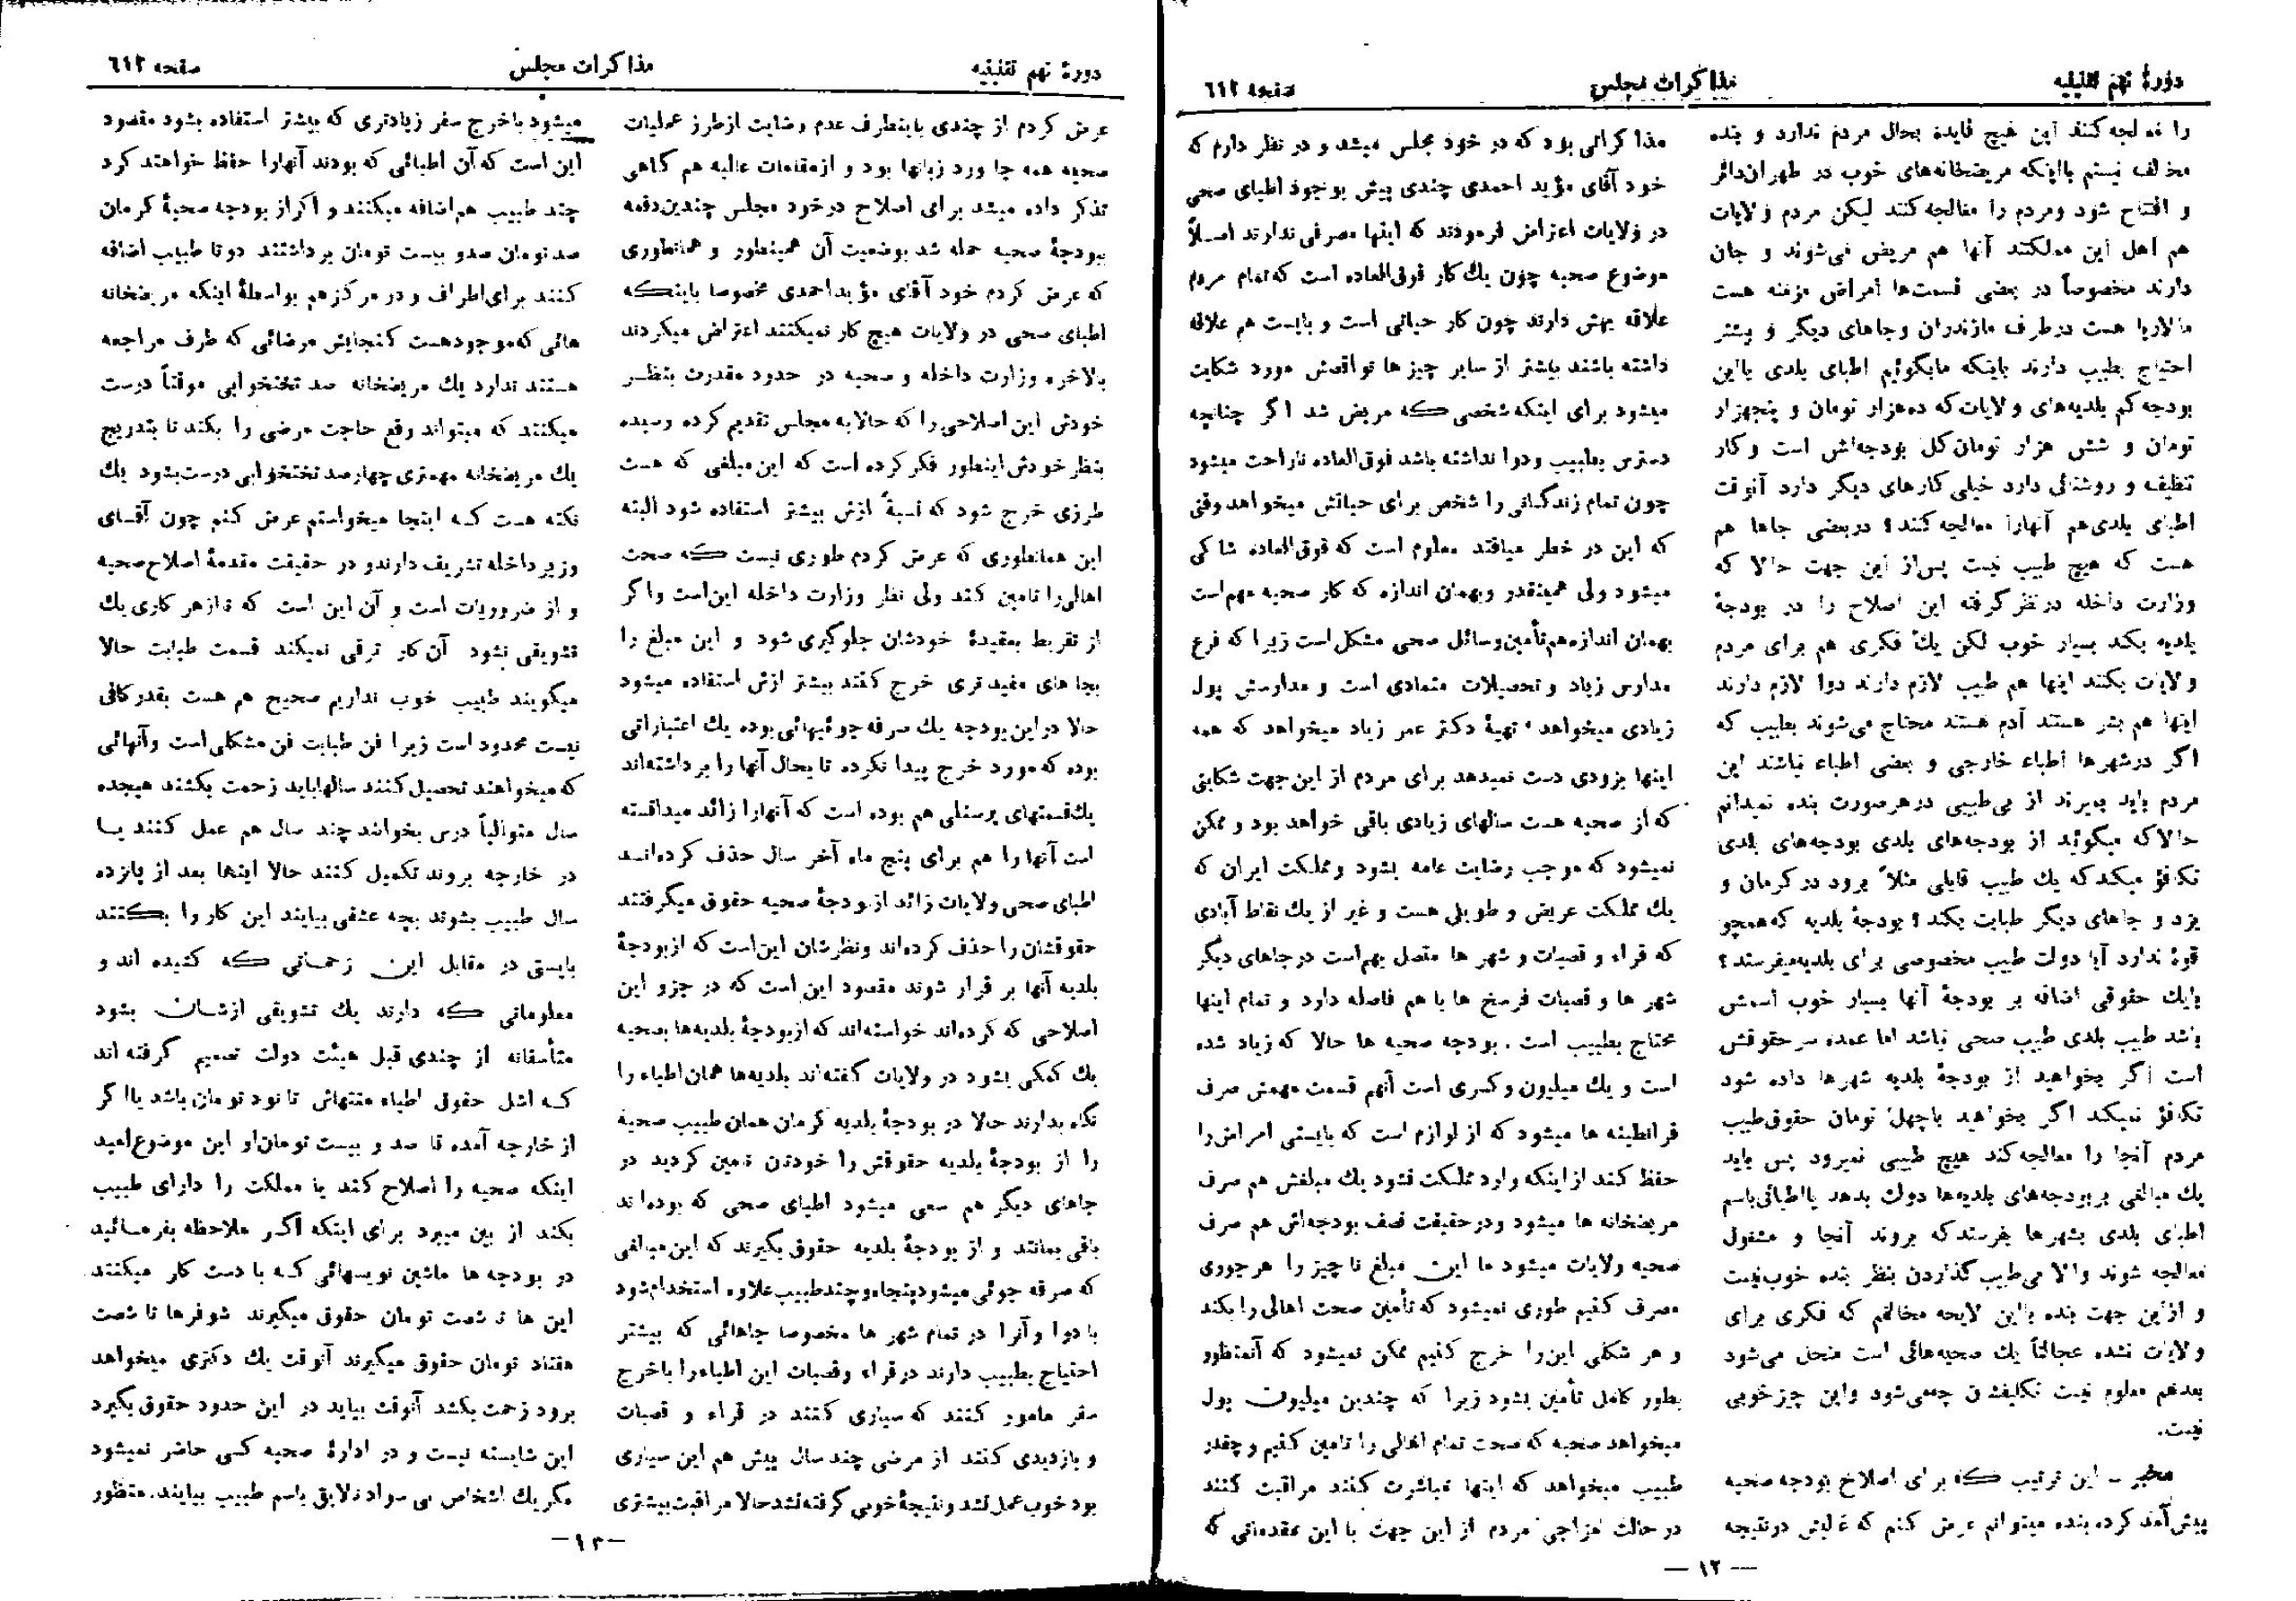 دورهٔ نهم تقنینیه
مذاکرات مجلس
صفحه ٦١٢
را معالجه کنند این هیچ فایده بحال مردم ندارد و بنده
مخالف نیستم بااینکه مریضخانه‌های خوب در طهران دائر
و افتتاح شود ومردم را معالجه کنند لیکن مردم ولایات
هم اهل این مملکتند آنها هم مریض می‌شوند و جان
دارند مخصوصاً در بعضی قسمت‌ها امراض مزمنه هست
مالاریا هست درطرف مازندران وجاهای دیگر و بیشتر
احتیاج بطبیب دارند باینکه مابگوئیم اطبای بلدی بااین
بودجه کم بلدیه‌های ولایات که ده‌هزار تومان و پنجهزار
تومان و شش هزار تومان کل بودجه‌اش است وکار
تنظیف و روشنائی دارد خیلی کارهای دیگر دارد آنوقت
اطبای بلدی هم آنهارا معالجه کنند؟ دربعضی جاها هم
هست که هیچ طبیب نیست پس از این جهت حالا که
وزارت داخله درنظر گرفته این اصلاح را در بودجهٔ
بلدیه بکند بسیار خوب لکن یك فکری هم برای مردم
ولایات بکنند اینها هم طبیب لازم دارند دوا لازم دارند
اینها هم بشر هستند آدم هستند محتاج می‌شوند بطبیب که
اگر درشهرها اطباء خارجی و بعضی اطباء نباشند این
مردم باید بمیرند از بی‌طبیبی درهرصورت بنده نمیدانم
حالاکه میگوئید از بودجه‌های بلدی بودجه‌های بلدی
تکافؤ میکند که یك طبیب قابلی مثلاً برود در کرمان و
یزد و جاهای دیگر طبابت بکند؟ بودجهٔ بلدیه که همچو
قوهٔ ندارد آیا دولت طبیب مخصوصی برای بلدیه میفرستد؟
بایك حقوقی اضافه بر بودجهٔ آنها بسیار خوب اسمش
باشد طبیب بلدی طبیب صحی نباشد اما عمده سر حقوقش
است اگر بخواهید از بودجهٔ بلدیه شهرها داده شود
تکافؤ نمیکند اگر بخواهید باچهل تومان حقوق طبیب
مردم آنجا را معالجه کند هیچ طبیبی نمیرود پس باید
یك مبالغی بربودجه‌های بلدیه‌ها دولت بدهد یااطبائی باسم
اطبای بلدی بشهرها بفرستد که بروند آنجا و مشغول
معالجه شوند والا بی‌طبیب گذاردن بنظر بنده خوب نیست
و ازاین جهت بنده بااین لایحه مخالفم که فکری برای
ولایات نشده عجالتاً یك صحیه‌هائی است منحل می‌شود
بعدهم معلوم نیست تکلیفشان چه می‌شود واین چیز خوبی
نیست.
مخبر ـ این ترتیب که برای اصلاح بودجه صحیه
پیش آمد کرده بنده میتوانم عرض کنم که غالبش درنتیجه
مذاکراتی بود که در خود مجلس میشد و در نظر دارم که
خود آقای مؤید احمدی چندی پیش بوجود اطبای صحی
در ولایات اعتراض فرمودند که اینها مصرفی ندارند اصلاً
موضوع صحیه چون یك کار فوق‌العاده است که تمام مردم
علاقه بهش دارند چون کار حیاتی است و بایست هم علاقه
داشته باشند بیشتر از سایر چیز ها نواقصش مورد شکایت
میشود برای اینکه شخصی که مریض شد اگر چنانچه
دسترس بطبیب ودوا نداشته باشد فوق‌العاده ناراحت میشود
چون تمام زندگانی را شخص برای حیاتش میخواهد وقتی
که این در خطر میافتد معلوم است که فوق‌العاده شاکی
میشود ولی همینقدر وبهمان اندازه که کار صحیه مهم است
بهمان اندازه هم تأمین وسائل صحی مشکل است زیرا که فرع
مدارس زیاد و تحصیلات متمادی است و مدارسش پول
زیادی میخواهد تهیهٔ دکتر عمر زیاد میخواهد که همه
اینها بزودی دست نمیدهد برای مردم از این جهت شکایتی
که از صحیه هست سالهای زیادی باقی خواهد بود و ممکن
نمیشود که موجب رضایت عامه بشود ومملکت ایران که
یك مملکت عریض و طویلی هست و غیر از یك نقاط آبادی
که قراء و قصبات و شهر ها متصل بهم است درجاهای دیگر
شهر ها و قصبات فرسخ ها با هم فاصله دارد و تمام اینها
محتاج بطبیب است . بودجه صحیه ها حالا که زیاد شده
است و یك میلیون وکسری است آنهم قسمت مهمش صرف
قرانطینه ها میشود که از لوازم است که بایستی امراض را
حفظ کنند از اینکه وارد مملکت نشود یك مبلغش هم صرف
مریضخانه ها میشود ودرحقیقت نصف بودجه‌اش هم صرف
صحیه ولایات میشود ما این مبلغ ناچیز را هرجوری
مصرف کنیم طوری نمیشود که تأمین صحت اهالی را بکند
و هر شکلی این را خرج کنیم ممکن نمیشود که آنمنظور
بطور کامل تأمین بشود زیرا که چندین میلیون پول
میخواهد صحیه که صحت تمام اهالی را تامین کنیم و چقدر
طبیب میخواهد که اینها مباشرت کنند مراقبت کنند
در حالت مزاجی مردم از این جهت با این مقدماتی که
— ١٢ —
دورهٔ نهم تقنینیه
مذاکرات مجلس
صفحه ٦١٣
عرض کردم از چندی باینطرف عدم رضایت ازطرز عملیات
صحیه همه جا ورد زبانها بود و ازمقامات عالیه هم گاهی
تذکر داده میشد برای اصلاح درخود مجلس چندین دفعه
ببودجهٔ صحیه حمله شد بوضعیت آن همینطور و همانطوری
که عرض کردم خود آقای مؤیداحمدی مخصوصا باینکه
اطبای صحی در ولایات هیچ کار نمیکنند اعتراض میکردند
بالاخره وزارت داخله و صحیه در حدود مقدرت بنظر
خودش این اصلاحی را که حالا به مجلس تقدیم کرده رسیده
بنظر خودش اینطور فکر کرده است که این مبلغی که هست
طرزی خرج شود که نسبةً ازش بیشتر استفاده شود البته
این همانطوری که عرض کردم طوری نیست که صحت
اهالی را تامین کند ولی نظر وزارت داخله این است واگر
از تفریط بعقیدهٔ خودشان جلوگیری شود و این مبلغ را
بجا های مفید تری خرج کنند بیشتر ازش استفاده میشود
حالا دراین بودجه یك صرفه جوئیهائی بوده یك اعتباراتی
بوده که مورد خرج پیدا نکرده تا بحال آنها را برداشته‌اند
یك قسمتهای پرسنلی هم بوده است که آنهارا زائد میدانسته
است آنها را هم برای پنج ماه آخر سال حذف کرده‌اند
اطبای صحی ولایات زائد ازبودجهٔ صحیه حقوق میگرفتند
حقوقشان را حذف کرده‌اند ونظرشان این است که ازبودجهٔ
بلدیه آنها بر قرار شوند مقصود این است که در جزو این
اصلاحی که کرده‌اند خواسته‌اند که ازبودجهٔ بلدیه‌ها بصحیه
یك کمکی بشود در ولایات گفته‌اند بلدیه‌ها همان اطباء را
نگاه بدارند حالا در بودجهٔ بلدیه کرمان همان طبیب صحیهٔ
را از بودجهٔ بلدیه حقوقش را خودتان تامین کردید در
جاهای دیگر هم سعی میشود اطبای صحی که بوده‌اند
باقی بمانند و از بودجهٔ بلدیه حقوق بگیرند که این مبالغی
که صرفه جوئی میشود پنجاه و چند طبیب علاوه استخدام شود
با دوا و آنرا در تمام شهر ها مخصوصا جاهائی که بیشتر
احتیاج بطبیب دارند درقراء وقصبات این اطباء را باخرج
سفر مامور کنند که سیاری کنند در قراء و قصبات
و بازدیدی کنند از مرضی چند سال پیش هم این سیاری
بود خوب عمل نشد و نتیجهٔ خوبی گرفته نشد حالا مراقبت بیشتری
میشود باخرج سفر زیادتری که بیشتر استفاده بشود مقصود
این است که آن اطبائی که بودند آنهارا حفظ خواهند کرد
چند طبیب هم اضافه میکنند و اگر از بودجه صحیهٔ کرمان
صد تومان صدو بیست تومان برداشتند دوتا طبیب اضافه
کنند برای اطراف و در مرکز هم بواسطهٔ اینکه مریضخانه
هائی که موجود هست گنجایش مرضائی که طرف مراجعه
هستند ندارد یك مریضخانه صد تختخوابی موقتاً درست
میکنند که میتواند رفع حاجت مرضی را بکند تا بتدریج
یك مریضخانه مهمتری چهارصد تختخوابی درست بشود یك
نکته هست که اینجا میخواستم عرض کنم چون آقای
وزیر داخله تشریف دارندو در حقیقت مقدمهٔ اصلاح صحیه
و از ضروریات است و آن این است که تا زهر کاری یك
تشویقی نشود آن کار ترقی نمیکند قسمت طبابت حالا
میگویند طبیب خوب نداریم صحیح هم هست بقدر کافی
نیست محدود است زیرا فن طبابت فن مشکلی است وآنهائی
که میخواهند تحصیل کنند سالها باید زحمت بکشند هیجده
سال متوالیاً درس بخوانند چند سال هم عمل کنند یا
در خارجه بروند تکمیل کنند حالا اینها بعد از پانزده
سال طبیب بشوند بچه عشقی بیایند این کار را بکنند
بایستی در مقابل این زحماتی که کشیده اند و
معلوماتی که دارند یك تشویقی ازشان بشود
متأسفانه از چندی قبل هیئت دولت تصمیم گرفته اند
که اشل حقوق اطباء منتهاش تا نود تومان باشد یااگر
از خارجه آمده تا صد و بیست تومان و این موضوع امید
اینکه صحیه را اصلاح کند یا مملکت را دارای طبیب
بکند از بین میبرد برای اینکه اگر ملاحظه بفرمائید
در بودجه ها ماشین نویسهائی که با دست کار میکنند
این ها تا شصت تومان حقوق میگیرند شوفرها تا شصت
هفتاد تومان حقوق میگیرند آنوقت یك دکتری میخواهد
برود زحمت بکشد آنوقت بیاید در این حدود حقوق بگیرد
این شایسته نیست و در ادارهٔ صحیه کسی حاضر نمیشود
مگر یك اشخاص بی سواد نالایق باسم طبیب بیایند. منظور
— ١٣ —